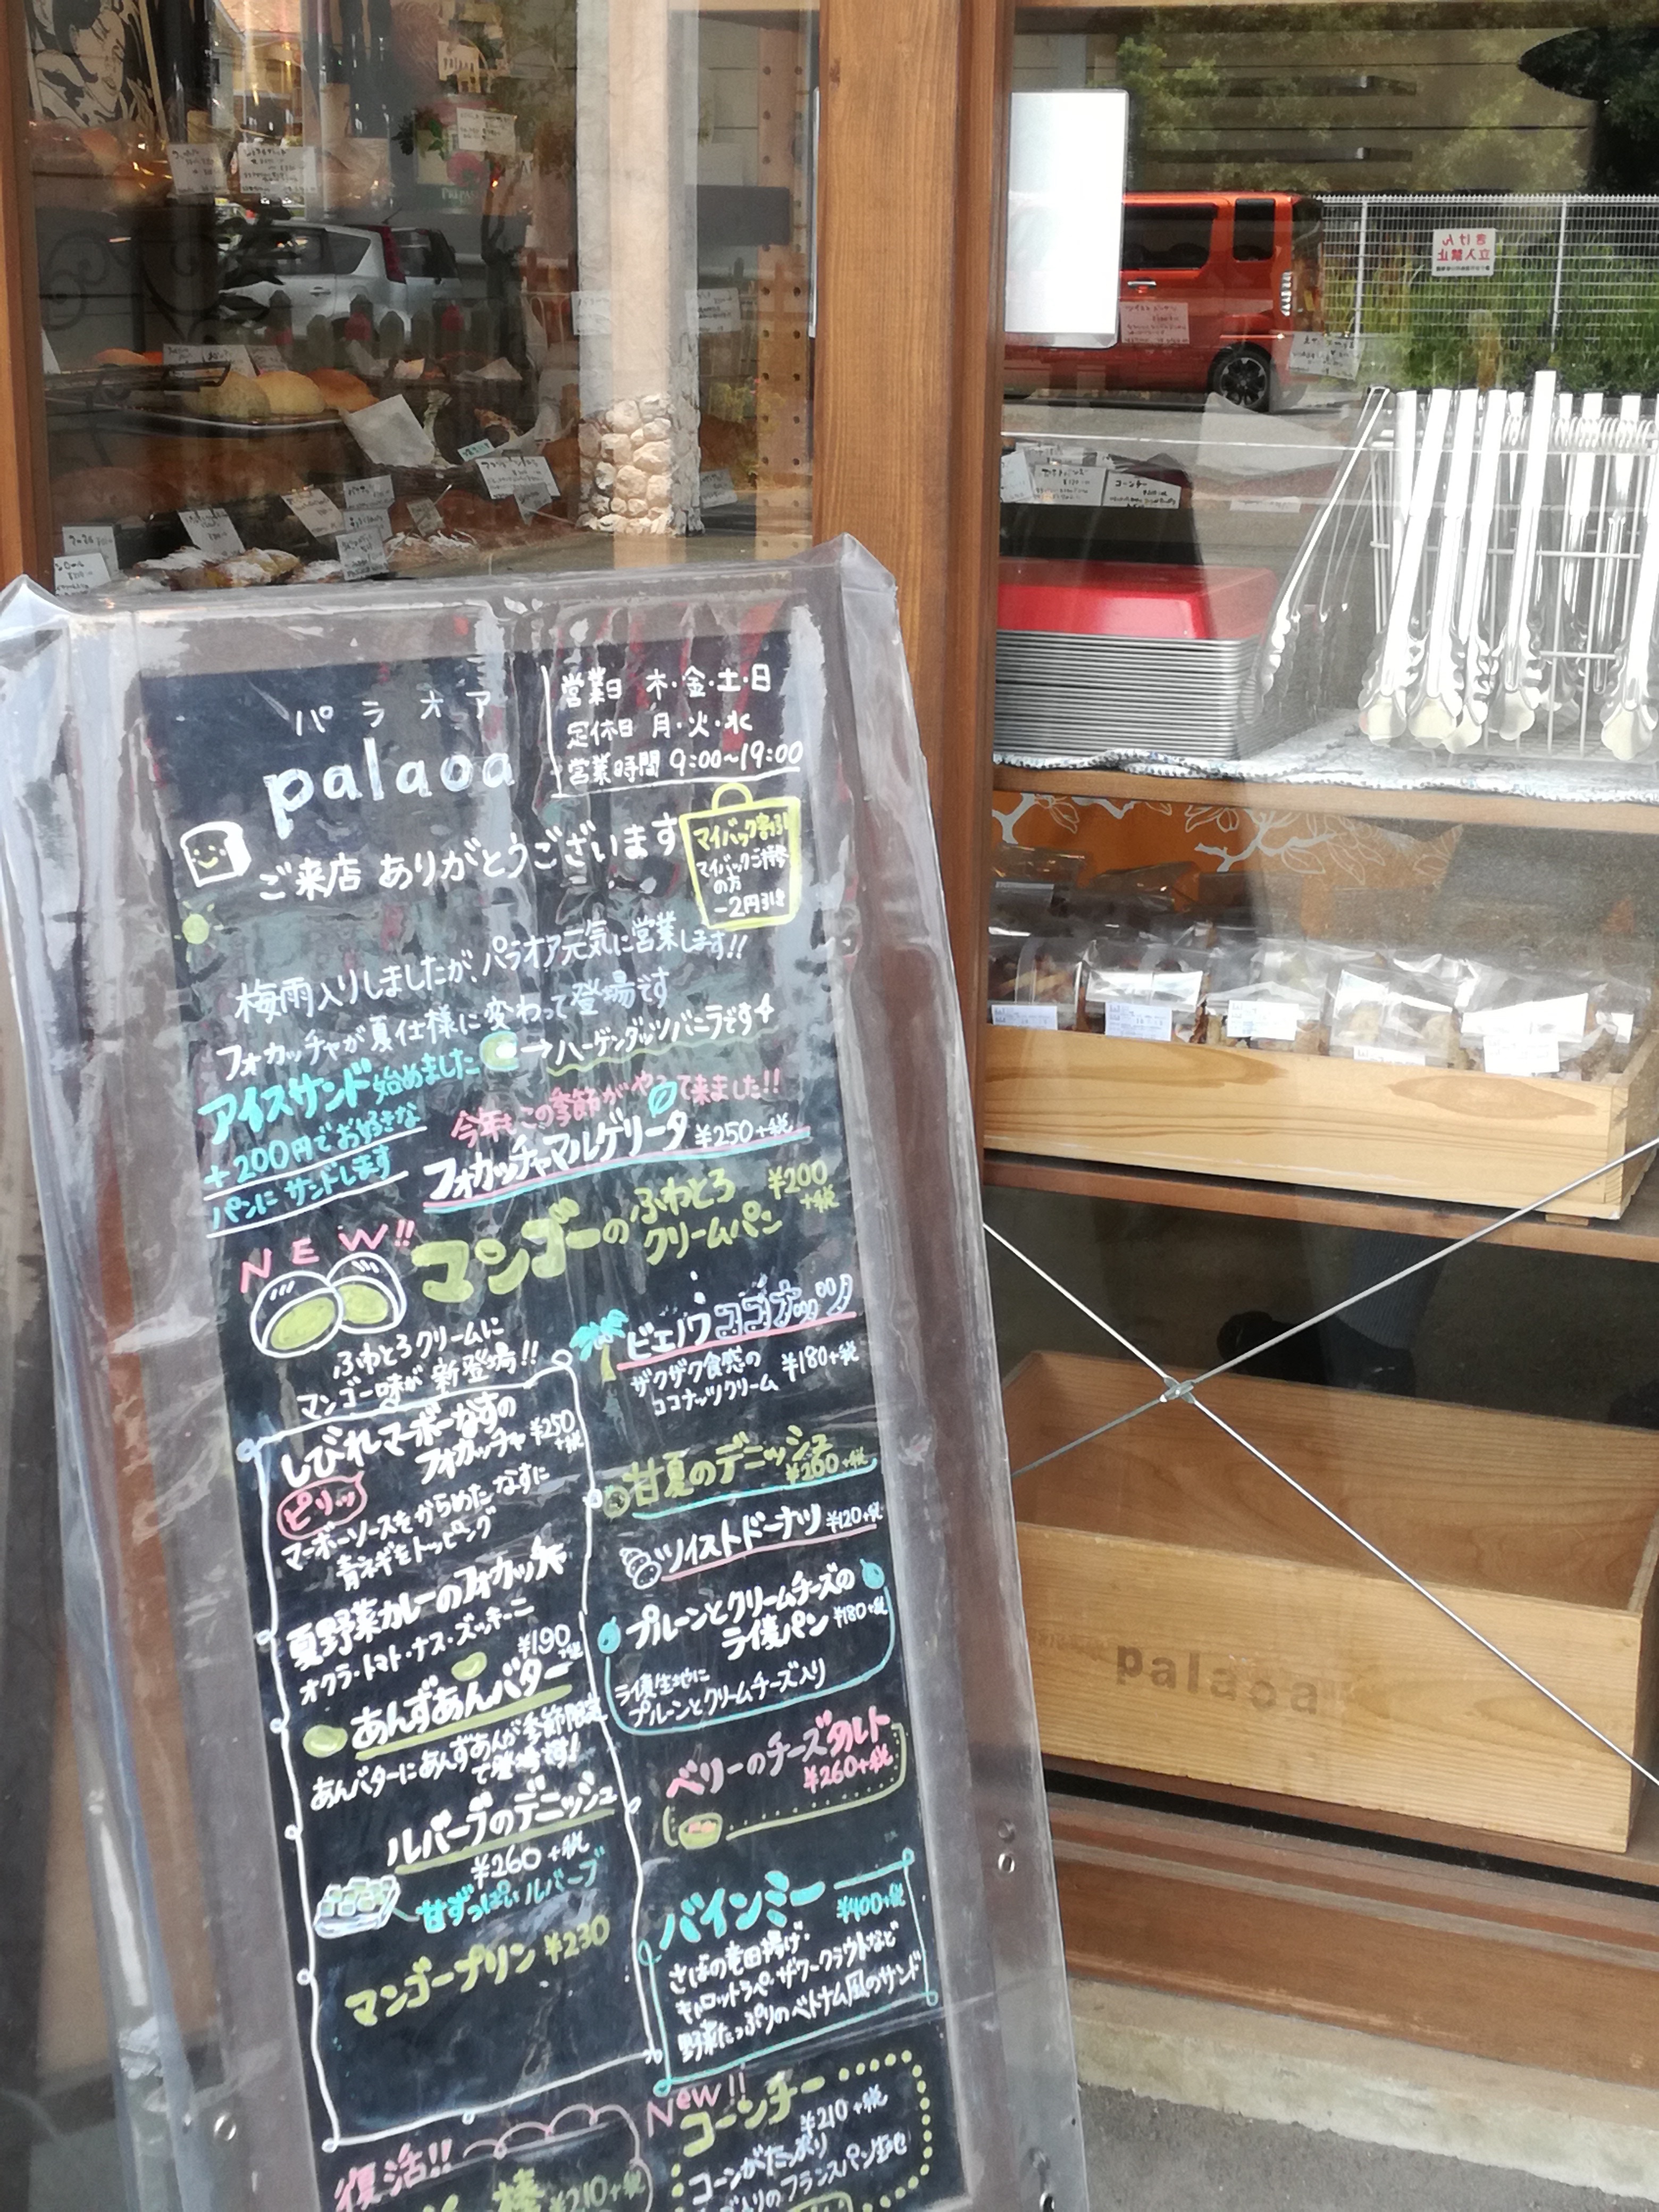 パラオア
palaoa
営業日 木・金・土・日
定休日 月・火・水
営業時間 9:00〜19:00
ご来店 ありがとうございます
マイバック割引
マイバックご持参
の方
-2円引き
梅雨入りしましたが、パラオア元気に営業します!!
フォカッチャが夏仕様に変わって登場です
アイスサンド始めました
→ハーゲンダッツバニラです
+200円でお好きな
パンにサンドします
今年もこの季節がやって来ました!!
フォカッチャマルゲリータ ¥250+税
NEW!!
マンゴーのふわとろ
クリームパン
¥200
+税
ふわとろクリームに
マンゴー味が新登場!!
しびれマーボーなすの
フォカッチャ ¥250
+税
ピリッ
マーボーソースをからめたなすに
青ネギをトッピング
夏野菜カレーのフォカッチャ
オクラ・トマト・ナス・ズッキーニ
¥190
+税
あんずあんバター
あんバターにあんずあんが季節限定
で登場です!
ルバーブのデニッシュ
¥260+税
甘ずっぱいルバーブ
マンゴープリン ¥230
復活!!
棒
¥210+税
ビエノワココナッツ
ザクザク食感の
ココナッツクリーム
¥180+税
甘夏のデニッシュ
¥260+税
ツイストドーナツ ¥120+税
プルーンとクリームチーズの
ライ麦パン ¥180+税
ライ麦生地に
プルーンとクリームチーズ入り
ベリーのチーズタルト
¥260+税
バインミー ¥400+税
さばの竜田揚げ・
キャロットラペ・ザワークラウトなど
野菜たっぷりのベトナム風のサンド
New!!
コーンチー
¥210+税
コーンがたっぷり
入りのフランスパン生地
コーンチー
きけん
立入禁止
palaoa